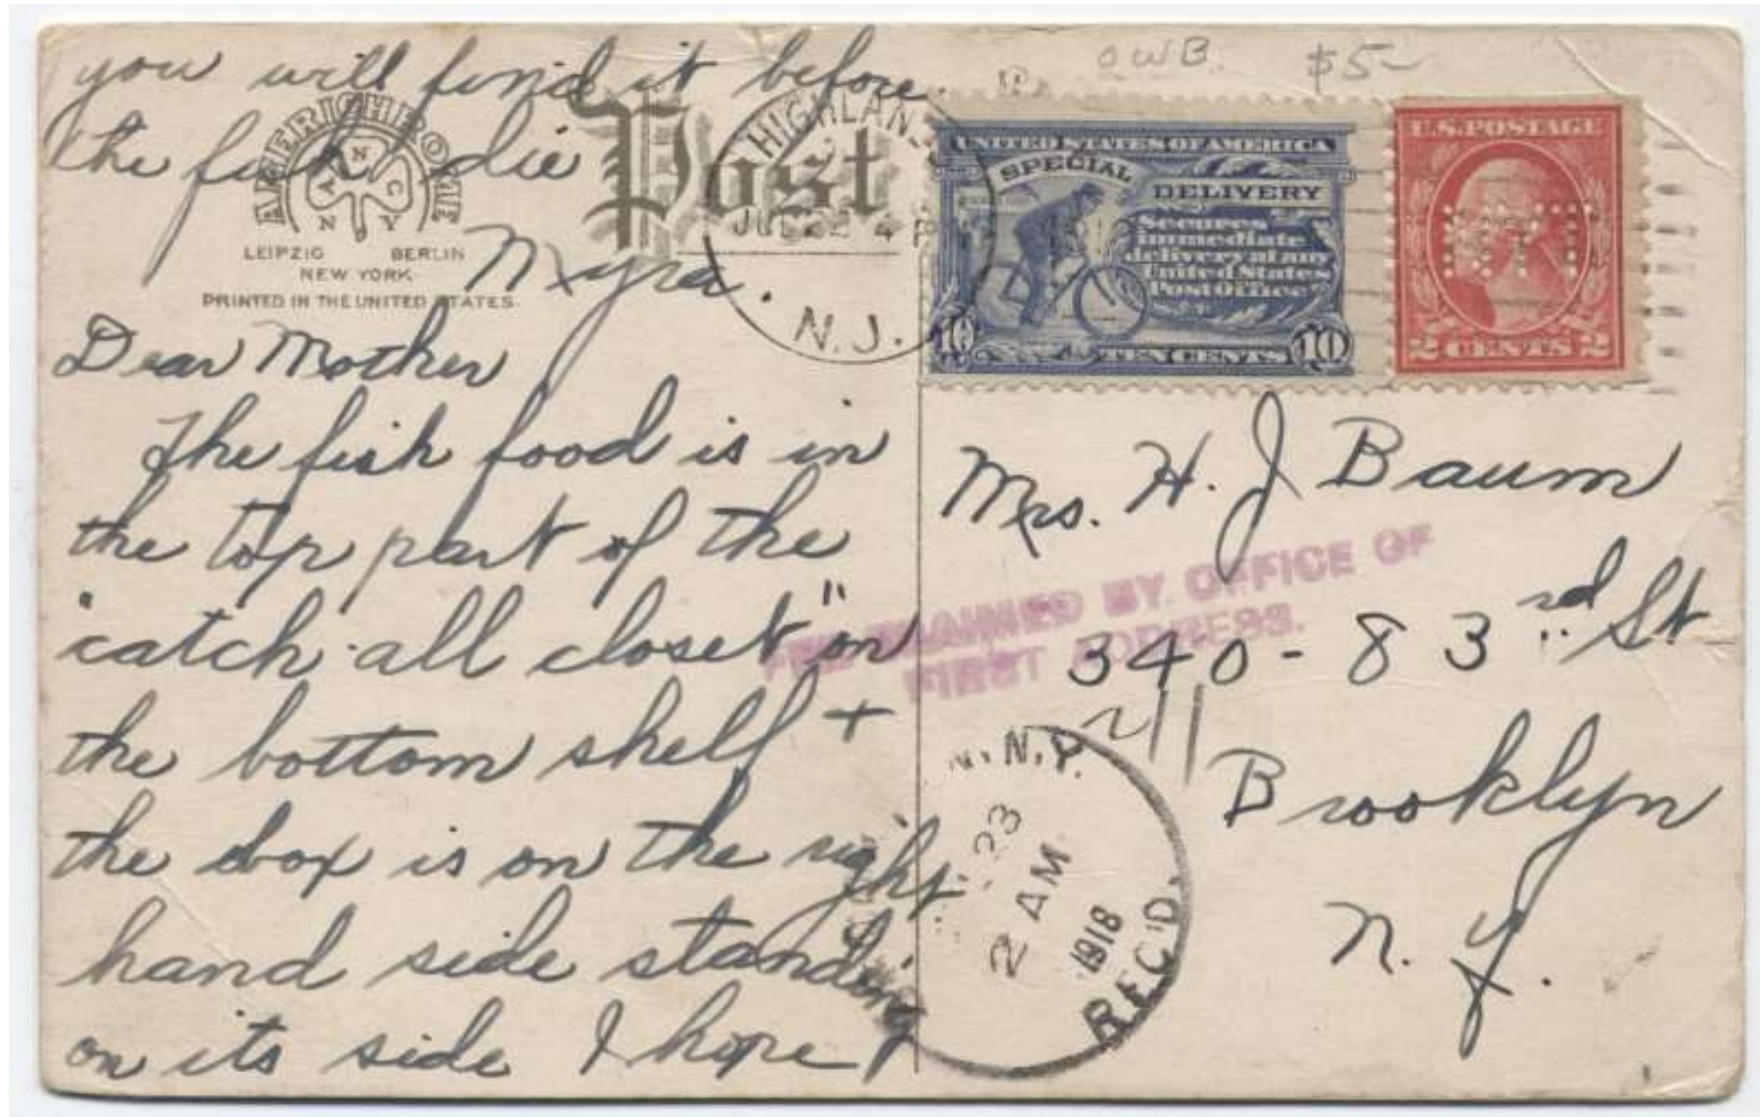 you will find it before
the fish die
Myra.
AMERICHROME
A N C
N Y
LEIPZIG BERLIN
NEW YORK
PRINTED IN THE UNITED STATES.
Post
HIGHLAN
22 4 P
N.J.
OWB. $5-
UNITED STATES OF AMERICA
SPECIAL
DELIVERY
Secures
immediate
delivery at any
United States
Post Office
10 TEN CENTS 10
U.S. POSTAGE
2 CENTS 2
Dear Mother
The fish food is in
the top part of the
"catch-all closet" on
the bottom shelf +
the box is on the right
hand side standing
on its side I hope
Mrs. H. J Baum
340 - 83rd St
Brooklyn
N. Y.
CLAIMED BY OFFICE OF
FIRST ADDRESS.
N.Y.
23
2 AM
1918
REC'D.